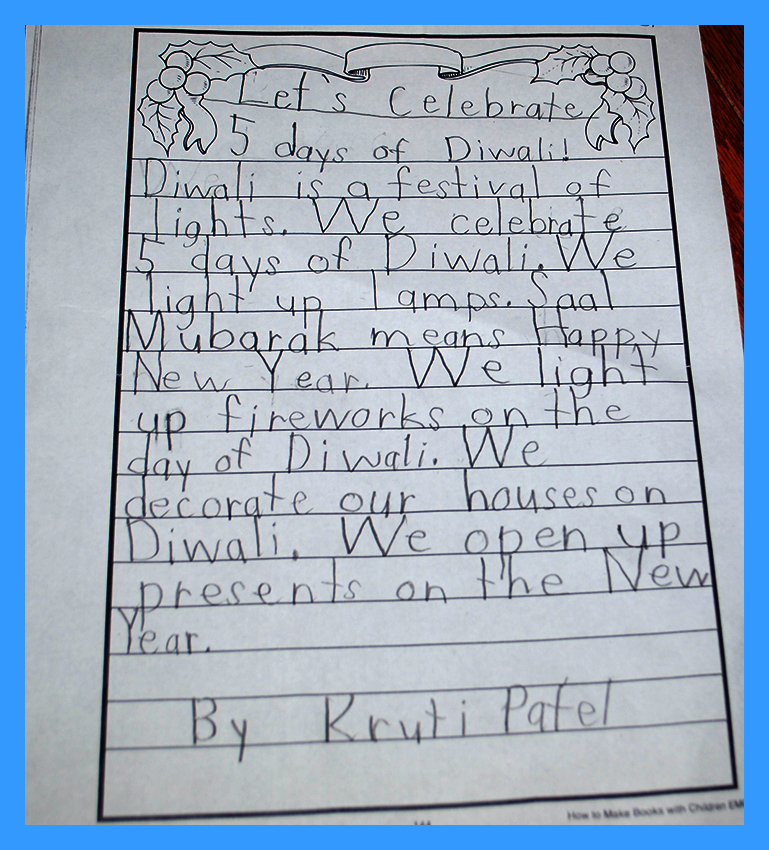 Let's Celebrate
5 days of Diwali!
Diwali is a festival of
lights. We celebrate
5 days of Diwali. We
light up lamps. Saal
Mubarak means Happy
New Year. We light
up fireworks on the
day of Diwali. We
decorate our houses on
Diwali. We open up
presents on the New
Year.
By Kruti Patel
How to Make Books with Children